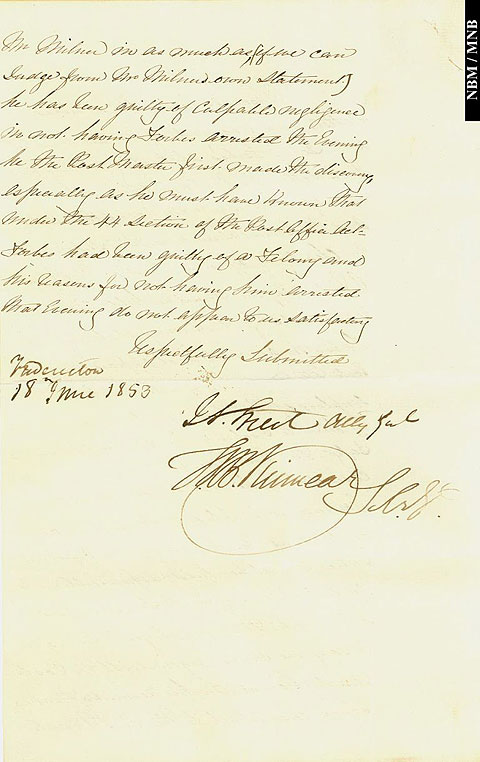 Mr Milner in as much as (if we can
Judge from Mr Milners own Statement)
he has been guilty of Culpable negligence
in not having Forbes arrested the Evening
he the Post Master first made the discovery,
especially as he must have known that
under the 44 Section of the Post Office Act
Forbes had been guilty of a Felony and
his reasons for not having him arrested
that Evening do not appear to us satisfactory
Respectfully Submitted
Fredericton
18th June 1853
J A Street Atty Genl
W B Kinnear
NBM / MNB